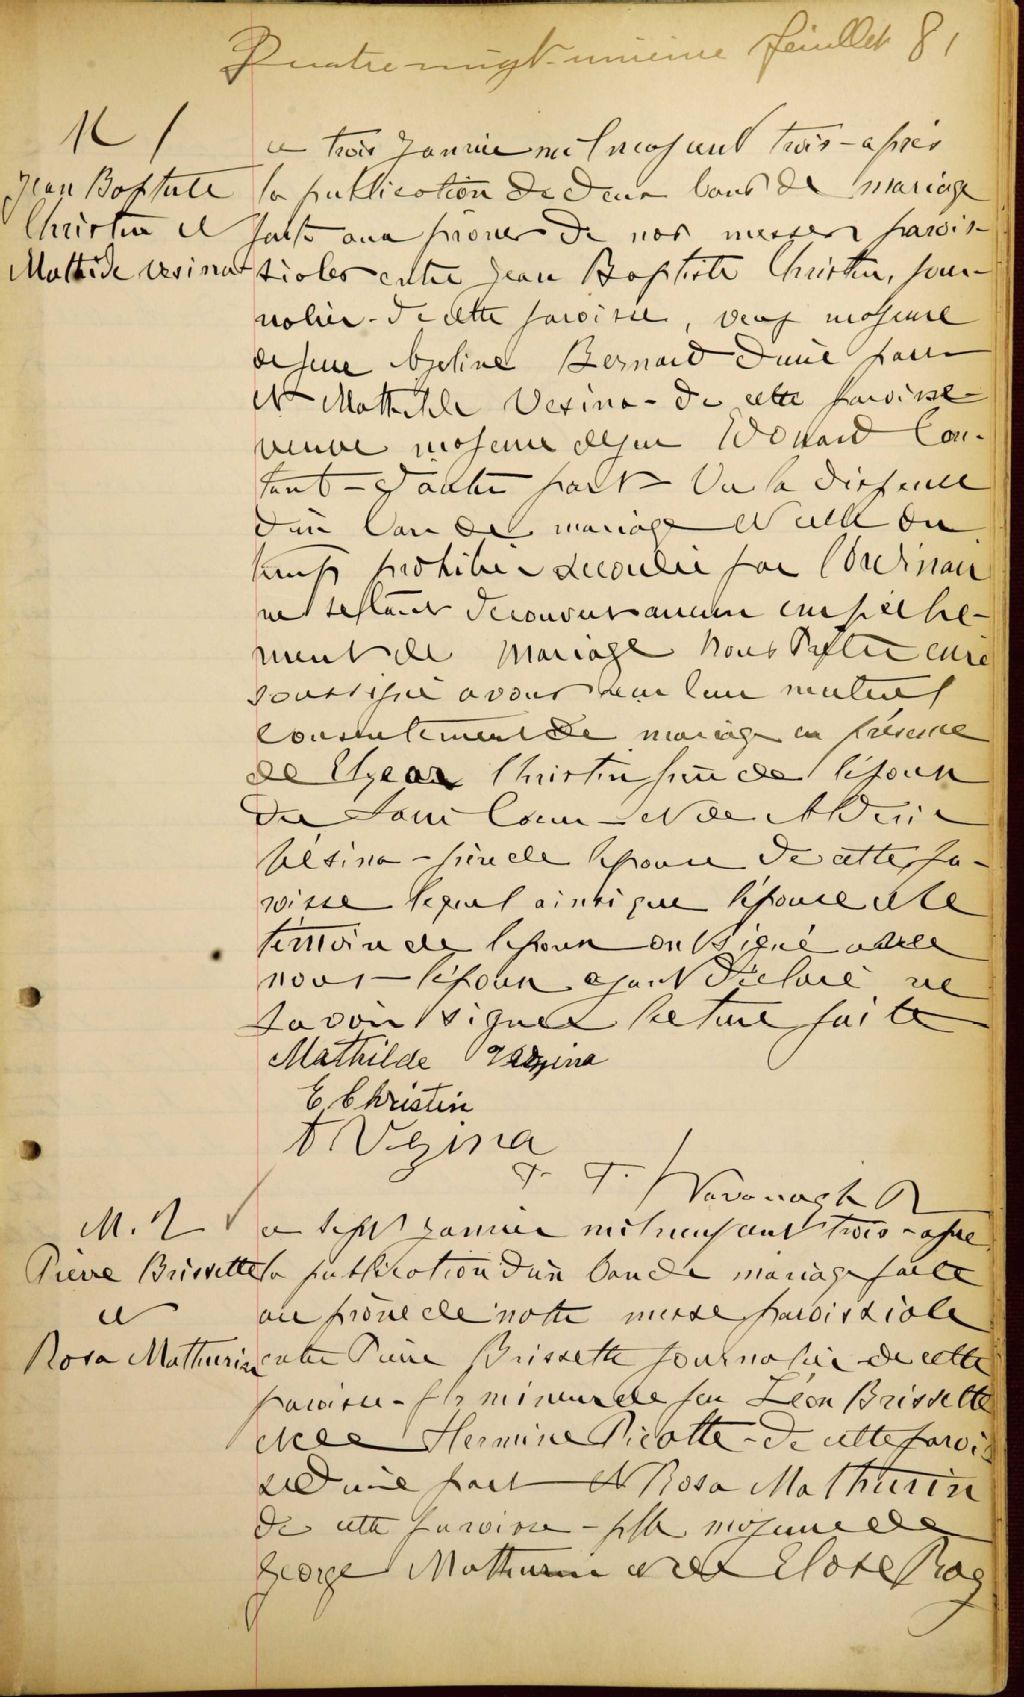 Quatre-vingt-unieme feuillet 81
M 1
Jean Baptiste
Christin et
Mathilde Vesina
Le trois Janvier mil neuf cent trois - après
la publication de deux bans de mariage
faite aux prônes de nos messes parois-
siales entre Jean Baptiste Christin, jour-
nalier - de cette paroisse, veuf majeure
de feue Azeline Bernard d'une part
et Mathilde Vesina - de cette paroisse
veuve majeure de feu Edouard Con-
tant - d'autre part - Vu la dispense
d'un ban de mariage et celle du
temps prohibé accordée par l'Ordinaire
ne s'étant découvert aucun empêche-
ment de mariage Nous Prêtre curé
soussigné avons reçu leur mutuel
consentement de mariage en présence
de Elzear Christin frère de l'époux
du Sacré Coeur - et de Alderic
Vésina - frère de l'épouse de cette pa-
roisse lequel ainsi que l'épouse et le
témoin de l'époux ont signé avec
nous - l'époux ayant déclaré ne
savoir signer lecture faite
Mathilde Vezina
E Christin
A Vezina
F. F. Kavanagh
M. 2
Pierre Brissette
et
Rosa Mathurin
Le sept Janvier mil neuf cent trois - après
la publication d'un ban de mariage faite
au prône de notre messe paroissiale
entre Pierre Brissette journalier de cette
paroisse - fils mineur de feu Léon Brissette
et de Hermine Picotte - de cette parois
se d'une part et Rosa Mathurin
de cette paroisse - fille majeure de
George Mathurin et de Elose Roy